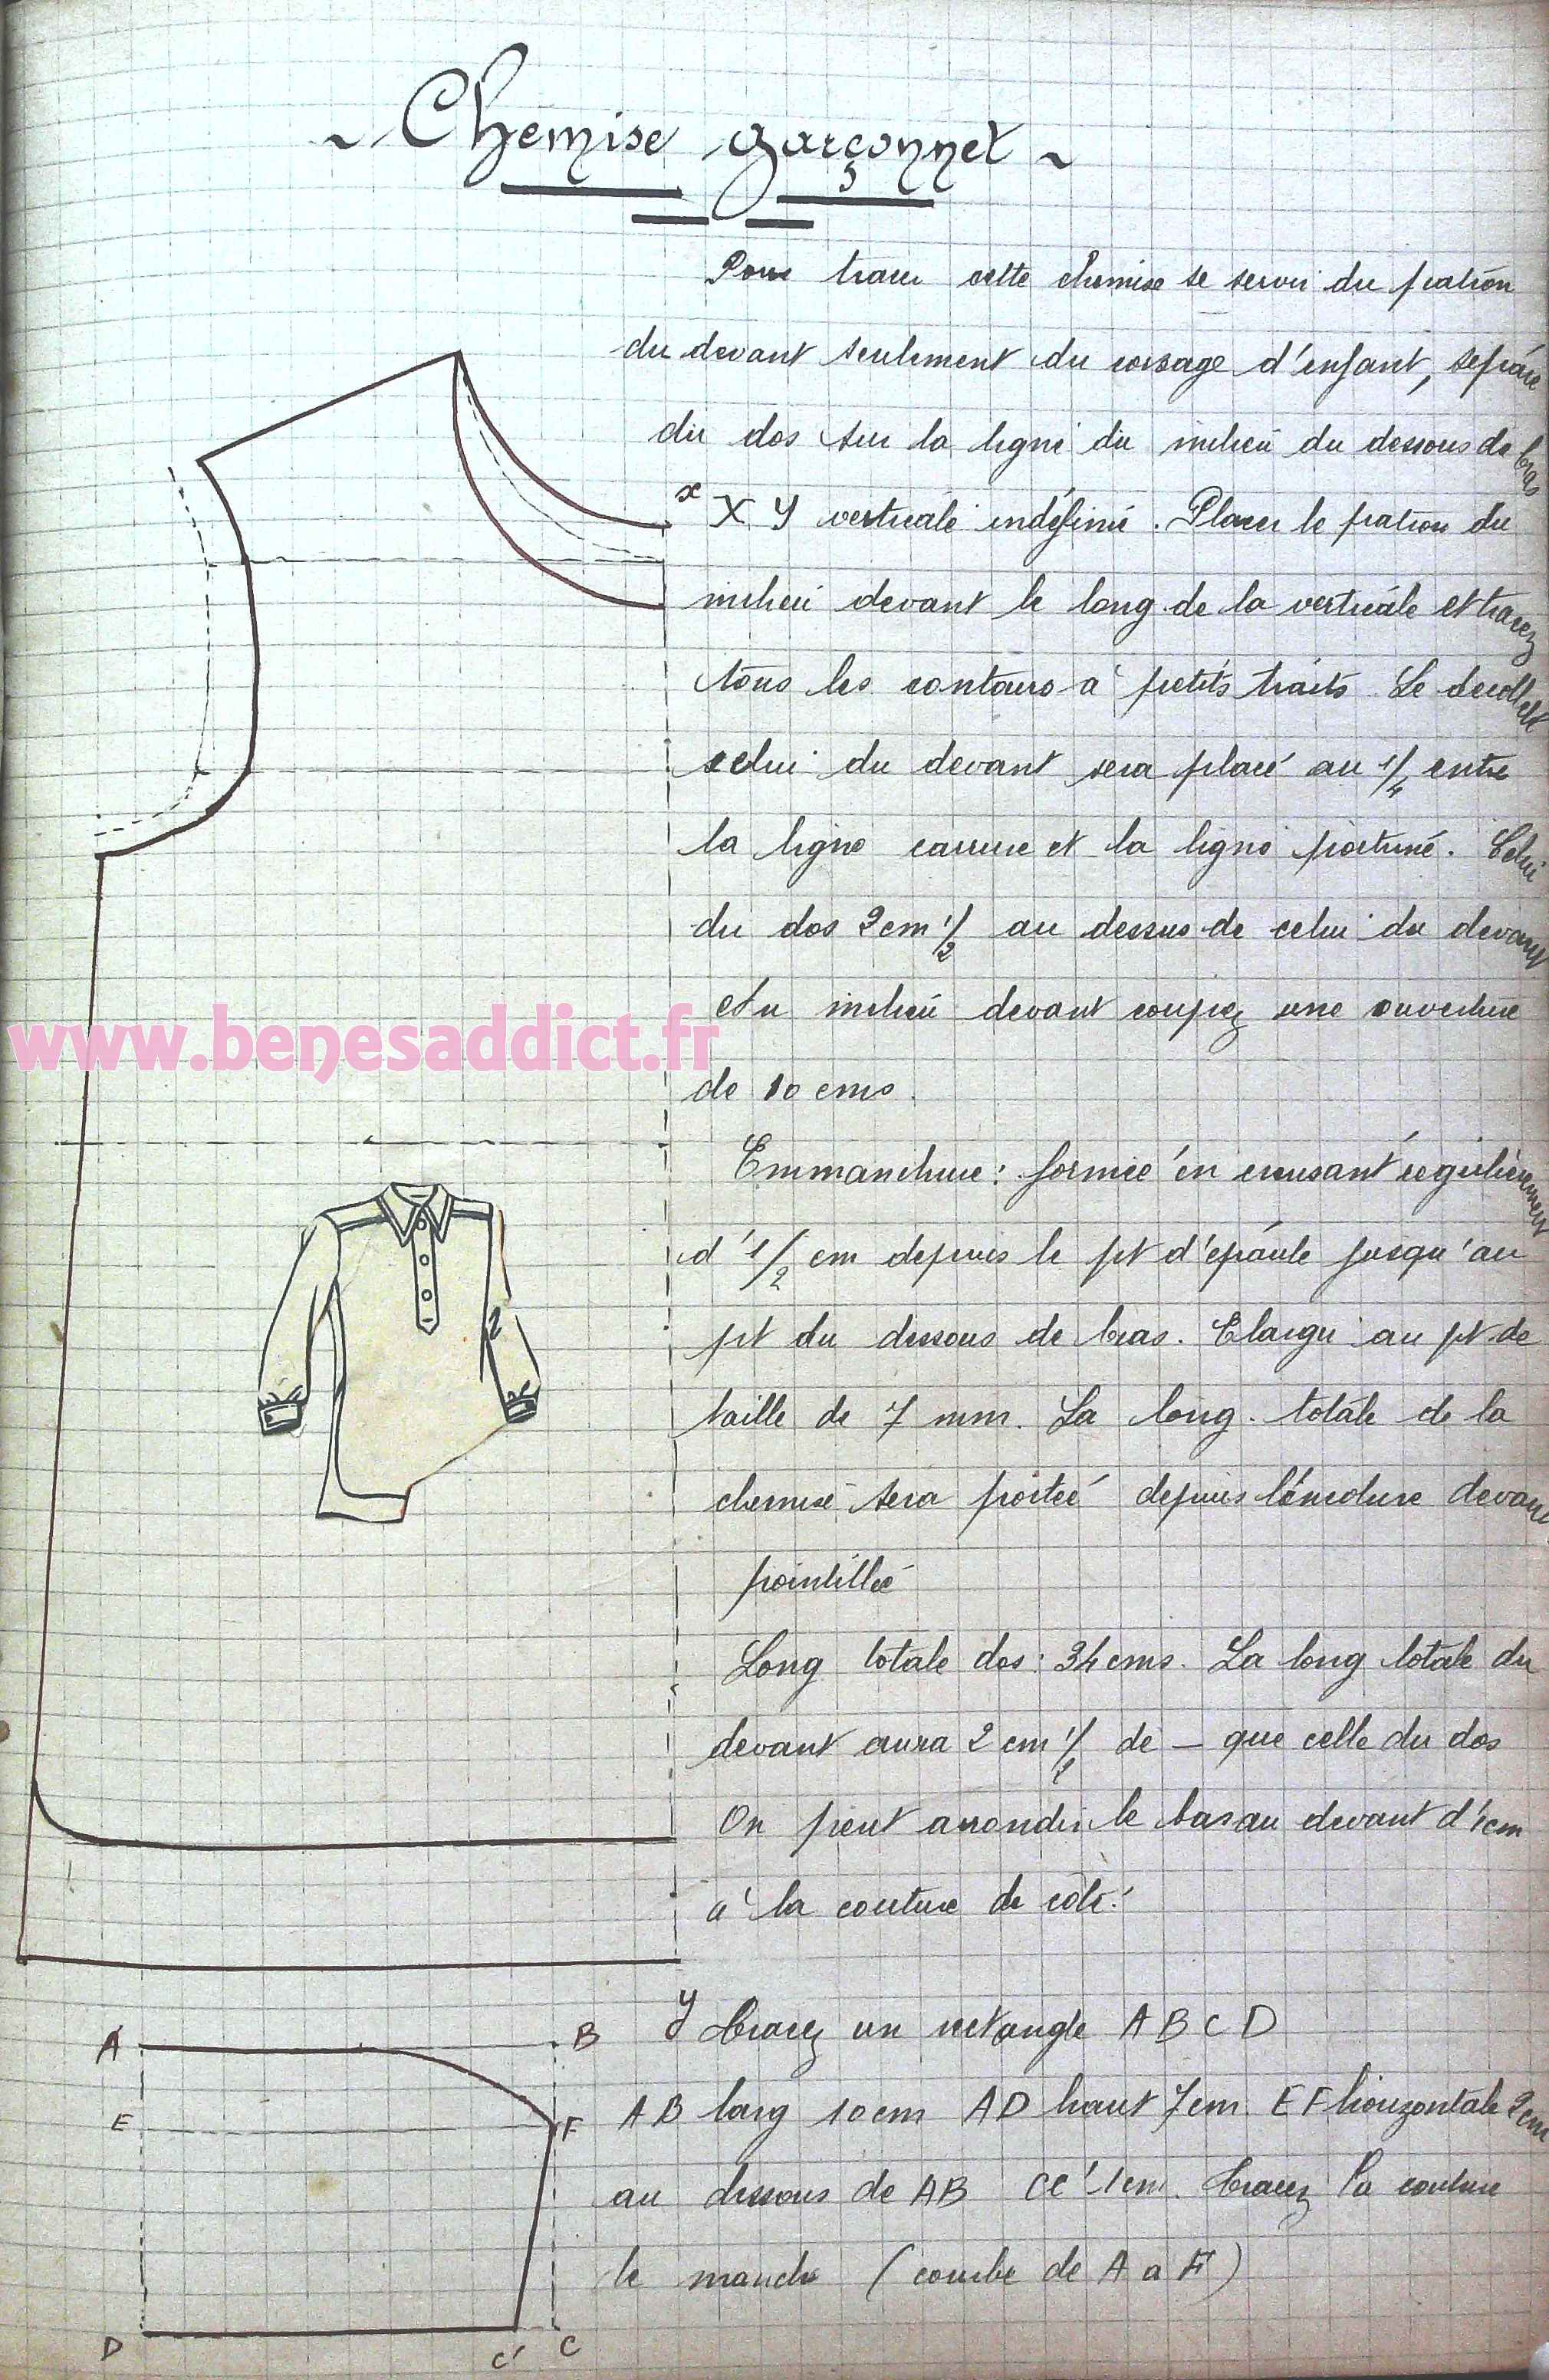 ~ Chemise garçonnet ~
Pour tracer cette chemise se servir du patron
du devant seulement du corsage d'enfant, séparé
du dos sur la ligne du milieu du dessous de bras
x X Y verticale indéfinie. Placer le patron du
milieu devant le long de la verticale et tracez
tous les contours à petits traits Le decolleté
celui du devant sera placé au 1/4 entre
la ligne carrure et la ligne poitrine. Celui
du dos 2cm 1/2 au dessus de celui du devant
Au milieu devant coupez une ouverture
www.benesaddict.fr
de 10 cms.
Emmanchure: formée en creusant régulièrement
d'1/2 cm depuis le pt d'épaule jusqu'au
pt du dessous de bras. Elargir au pt de
taille de 7 mm. La long. totale de la
chemise sera portée depuis l'encolure devant
pointillée
Long totale dos: 34 cms. La long totale du
devant aura 2 cm 1/2 de — que celle du dos
On peut arrondir le bas au devant d'1cm
à la couture de côté.
y Tracez un rectangle A B C D
A B
E F
A B larg 10cm AD haut 7cm. E F horizontale 2cm
au dessous de AB CC' 1cm. Tracez la couture
de manche (courbe de A a F)
D C' C